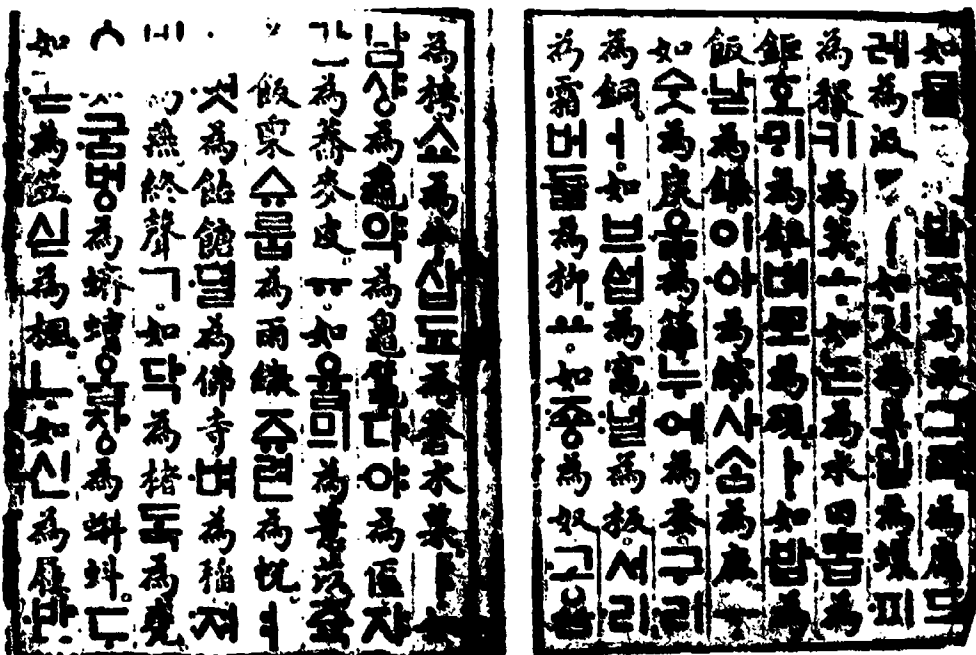 如믈為水발측為跟그력為雁드
레為汲ㅣ如깃為巢밀為蠟피
為稷키為箕ㅗ如논為水田톱為
鉅호ᄆᆡ為鉏벼로為硯ㅏ如밥為
飯낟為鎌이ᅌᅡ為綜사ᄉᆞᆷ為鹿ㅜ
如숫為炭울為籬누에為蚕구리
為銅ㅓ如브ᅀᅥᆸ為竈널為板서리
為霜버들為柳ㅛ如죵為奴고욤
為梬쇼為牛삽됴為蒼朮菜ㅑ如
남샹為龜약為鼁鼊다야為匜쟈
為蕎麥皮ㅠ如율믜為薏苡쥭
飯𣖄슈룹為雨繖쥬련為帨ㅕ
엿為飴餹뎔為佛寺벼為稻져
비為燕終聲ㄱ如닥為楮독為甕
굼벙為蠐螬올창為蝌蚪ㄷ
如為笠싣為楓ㄴ如신為屨반